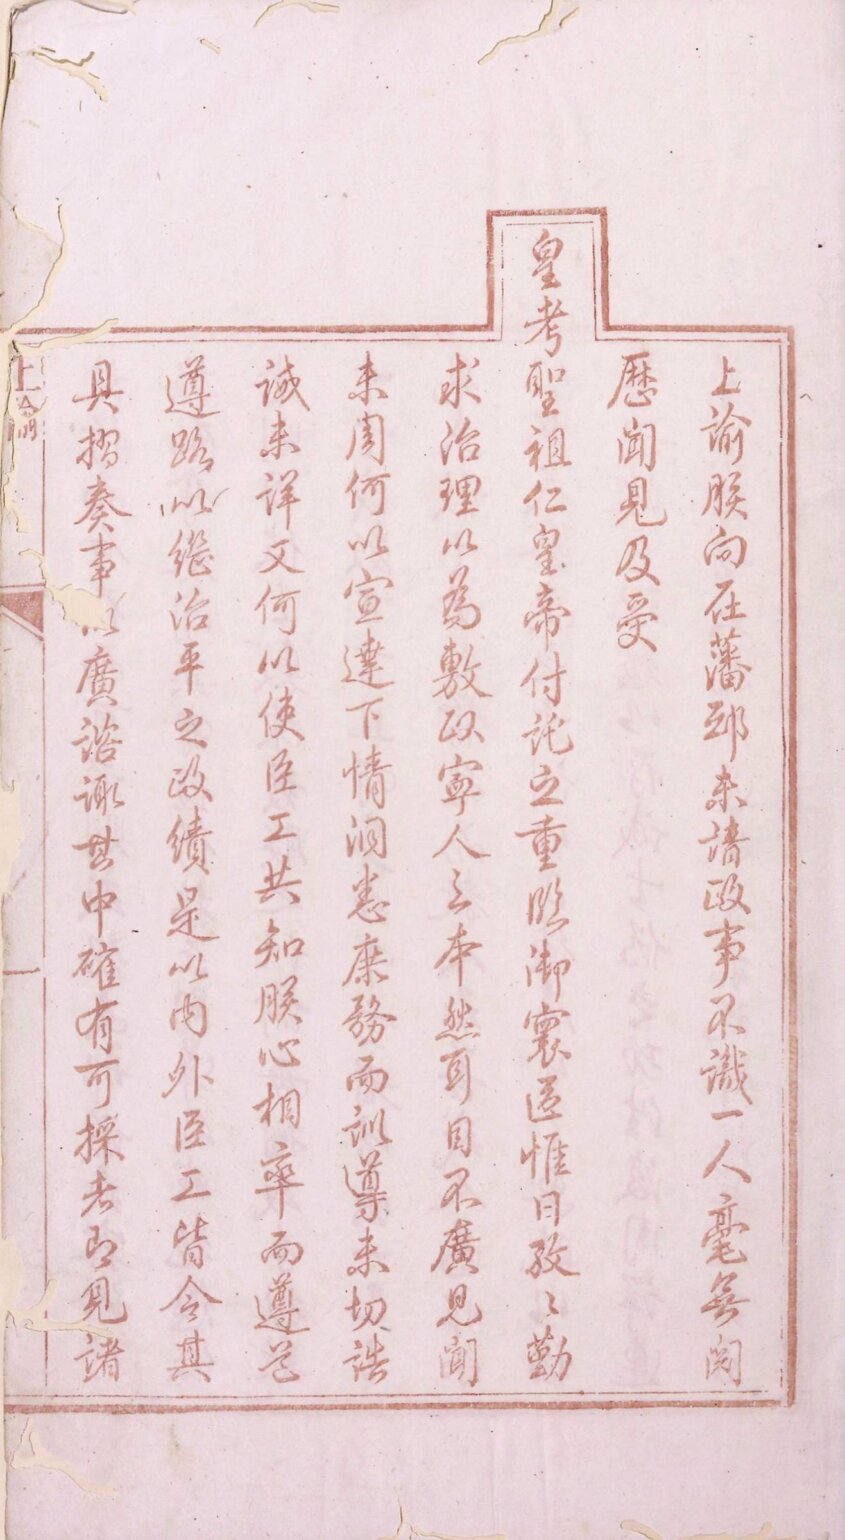 上諭朕向在藩邸未諳政事不識一人毫無閱
歷聞見及受
皇考聖祖仁皇帝付託之重臨御寰區惟日孜〻勤
求治理以為敷政寧人之本然耳目不廣見聞
未周何以宣達下情洞悉庶務而訓導未切誥
誡未詳又何以使臣工共知朕心相率而遵道
遵路以繼治平之政績是以內外臣工皆令其
具摺奏事以廣諮諏其中確有可採者即見諸
上諭